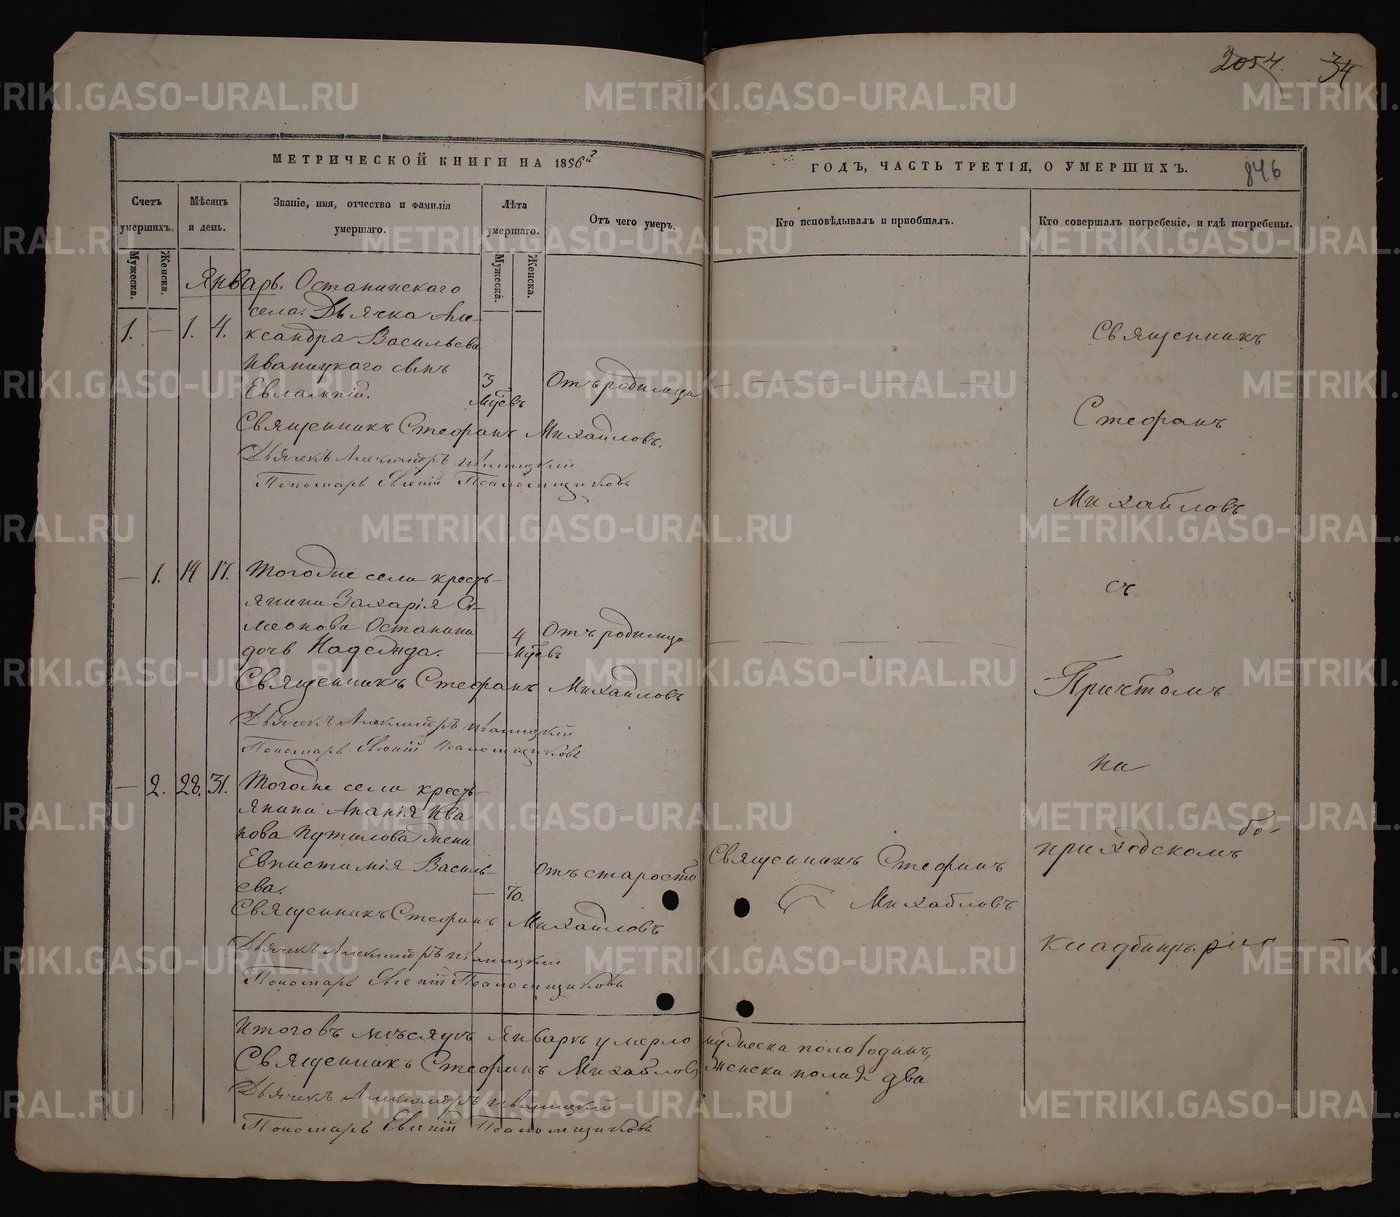 2054. 34
846
МЕТРИЧЕСКОЙ КНИГИ НА 1856й ГОДЪ, ЧАСТЬ ТРЕТІЯ, О УМЕРШИХЪ.
Счетъ умершихъ.
Мужеска. Женска.
Мѣсяцъ и день.
Званіе, имя, отчество и фамилія умершаго.
Лѣта умершаго.
Мужеска. Женска.
Отъ чего умеръ.
Кто исповѣдывалъ и пріобщалъ.
Кто совершалъ погребеніе, и гдѣ погребены.
Январь. Останинскаго
села. Дьячка Але-
1. — 1. 4. ксандра Васильева
Иваницкаго сынъ
Евлампій. 3 мцевъ Отъ родимца
Священникъ Стефанъ Михайловъ.
Дьячекъ Александръ Иваницкій
Пономарь Евгеній Псаломщиковъ
— 1. 14 17. Тогоже села кресть-
янина Захарія Си-
меонова Останина
дочь Надежда. — 4 мцевъ Отъ родимца
Священникъ Стефанъ Михайловъ
Дьячекъ Александръ Иваницкій
Пономарь Евгеній Псаломщиковъ
— 2. 28. 31. Тогоже села кресть-
янина Ананія Ива
нова Путилова жена
Евпистимія Василь-
ева. — 70. Отъ старости
Священникъ Стефанъ Михайловъ
Священникъ Стефанъ Михайловъ
Дьячекъ Александръ Иваницкій
Пономарь Евгеній Псаломщиковъ
Священникъ
Стефанъ
Михайловъ
съ
Причтомъ
на
приходскомъ
кладбищѣ.
Итого въ мѣсяцѣ Январѣ умерло мужеска пола 1 одинъ,
женска пола 2 два
Священникъ Стефанъ Михайловъ
Дьячекъ Александръ Иваницкій
Пономарь Евгеній Псаломщиковъ
METRIKI.GASO-URAL.RU